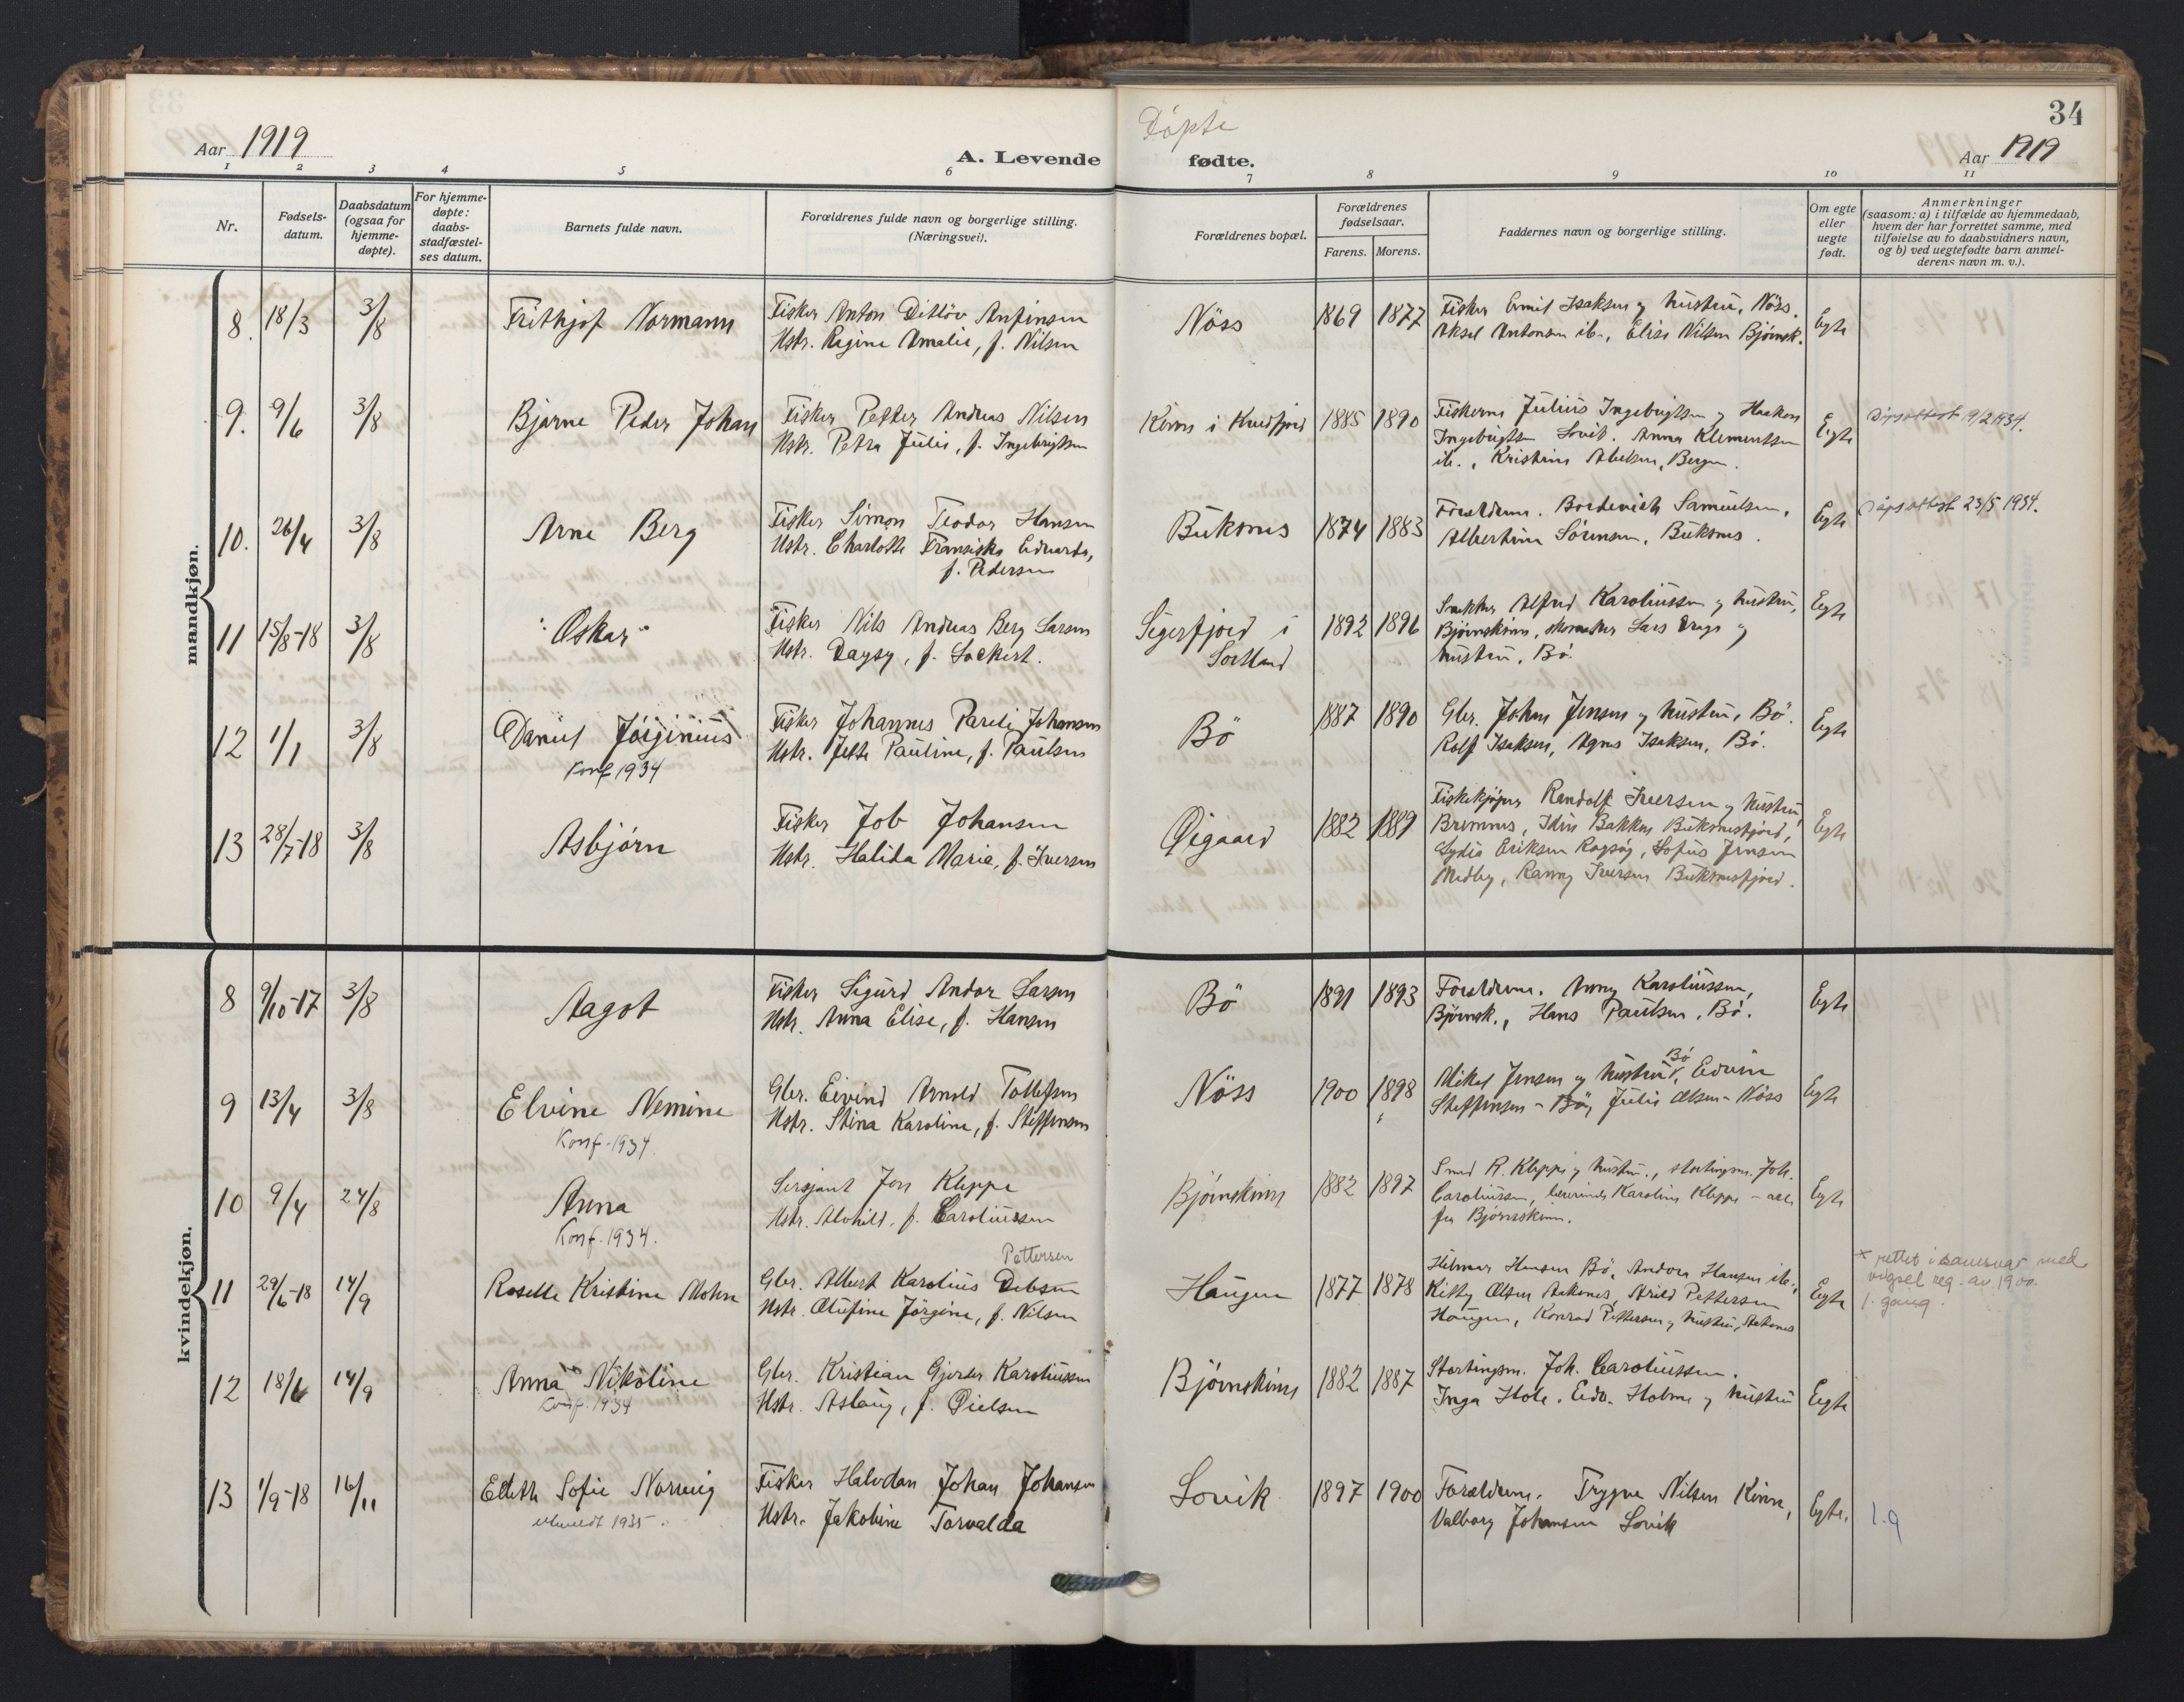 Aar 1919
A. Levende
Døpte
fødte.
34
Aar 1919
1 2 3 4 5 6 7 8 9 10 11
Nr.
Fødsels-
datum.
Daabsdatum
(ogsaa for
hjemme-
døpte).
For hjemme-
døpte:
daabs-
stadfæstel-
ses datum.
Barnets fulde navn.
Forældrenes fulde navn og borgerlige stilling.
(Næringsvei).
Forældrenes bopæl.
Forældrenes
fødselsaar.
Farens. Morens.
Faddernes navn og borgerlige stilling.
Om egte
eller
uegte
født.
Anmerkninger
(saasom: a) i tilfælde av hjemmedaab,
hvem der har forrettet samme, med
tilføielse av to daabsvidners navn,
og b) ved uegtefødte barn anmel-
derens navn m. v.).
mandkjøn.
8. 18/3 3/8 Frithjof Normann
Fisker Anton Ditløv Anfinsen
Hstr. Regine Amalie, f. Nilsen
Nöss 1869 1877
Fisker Emil Isaksen og hustru, Nöss.
Aksel Antonsen ib., Elise Nilsen Bjørnsk.
Egte
9. 9/6 3/8 Bjarne Peder Johan
Fisker Petter Andreas Nilsen
Hstr. Petra Julie, f. Ingebrigtsen
i Kvedfjord 1885 1890
Fiskerne Julius Ingebrigtsen og Haakon
Ingebrigtsen Lovik. Anna Klementsen
ib., Kristine Abelsen, Bergen.
Egte
Dåpsattest 19/2 1934.
10. 26/4 3/8 Arne Berg
Fisker Simon Teodor Hansen
Hstr. Charlotte Fransiska Eduarda,
f. Pedersen
Buksnes 1874 1883
Forældrene. Samuelsen,
Albertine Sörensen, Buksnes.
Egte
Dåpsattest 23/5 1934.
11 15/8-18 3/8 "Oskar"
Fisker Nils Andreas Berg Larsen
Hstr. Dagsy, f. Lockert.
Sigerfjord i
Sortland
1892 1896
Snekker Alfred Karoliussen og hustru,
Bjørnskinn, skomaker Lars og
hustru, Bö.
Egte
12 1/1 3/8 Daniel Jörginius
Konf 1934
Fisker Johannes Pareli Johansen
Hstr. Jette Pauline, f. Paulsen
Bö 1887 1890
Gbr. Johan Jensen og hustru, Bö.
Rolf Isaksen, Agnes Isaksen, Bö.
Egte
13 28/7-18 3/8 Asbjørn
Fisker Job Johansen
Hstr. Halida Marie, f. Iversen
Øigaard 1882 1889
Fiskekjøper Randolf Iversen og hustru,
Bremnes, Idin Bakken Buksnesfjord,
Lydia Eriksen Ragsöy, Sofus Jensen
Medby, Ranny Iversen Buksnesfjord.
Egte
kvindekjøn.
8 9/10-17 3/8 Aagot
Fisker Sigurd Andor Larsen
Hstr. Anna Elise, f. Hansen
Bö 1891 1893
Forældrene. Anny Karoliussen,
Bjørnsk., Hans Paulsen, Bö.
Egte
9 13/4 3/8 Elvine Nemine
Konf. 1934
Gbr. Eivind Arnold Tollefsen
Hstr. Stina Karoline, f. Steffensen
Nöss 1900 1898
Mikal Jensen og hustru Bö, Edvin
Steffensen - Bö, Julie Olsen - Nöss
Egte
10 9/4 24/8 Anna
Konf. 1934.
Sersjant Jon Kleppe
Hstr. Alvhild, f. Caroliussen
Bjørnskinn 1882 1897
Smed R. Kleppe og hustru., stortingsm. Joh.
Caroliussen, lærerinde Karoline Kleppe - alle
fra Bjørnskinn.
Egte
11 29/6-18 14/9 Roselle Kristine Mohn
Pettersen
Gbr. Albert Karolius
Hstr. Olufine Jörgine, f. Nilsen
Haugen 1877 1878
Hilmar Hansen Bö, Andora Hansen ib.,
Kitty Olsen Aaknes, Arild Pettersen
Haugen, Konrad Pettersen og hustru, Aaknes
Egte
x rettet i samsvar med
vigsel reg. av 1900.
1. gang.
12 18/6 14/9 Anna Nikoline
Konf. 1934
Gbr. Kristian Gjerder Karoliussen
Hstr. Aslaug, f. Dielsen
Bjørnskinn 1882 1887
Stortingsm. Joh. Caroliussen.
Inga Hole. Edv. Holme og hustru
Egte
13 1/9-18 16/11 Edith Sofie Norveig
utmeldt 1935.
Fisker Halvdan Johan Johansen
Hstr. Jakobine Torvalda
Lovik 1897 1900
Forældrene. Trygve Nilsen Kinn,
Valborg Johansen Lovik
Egte. 1.9